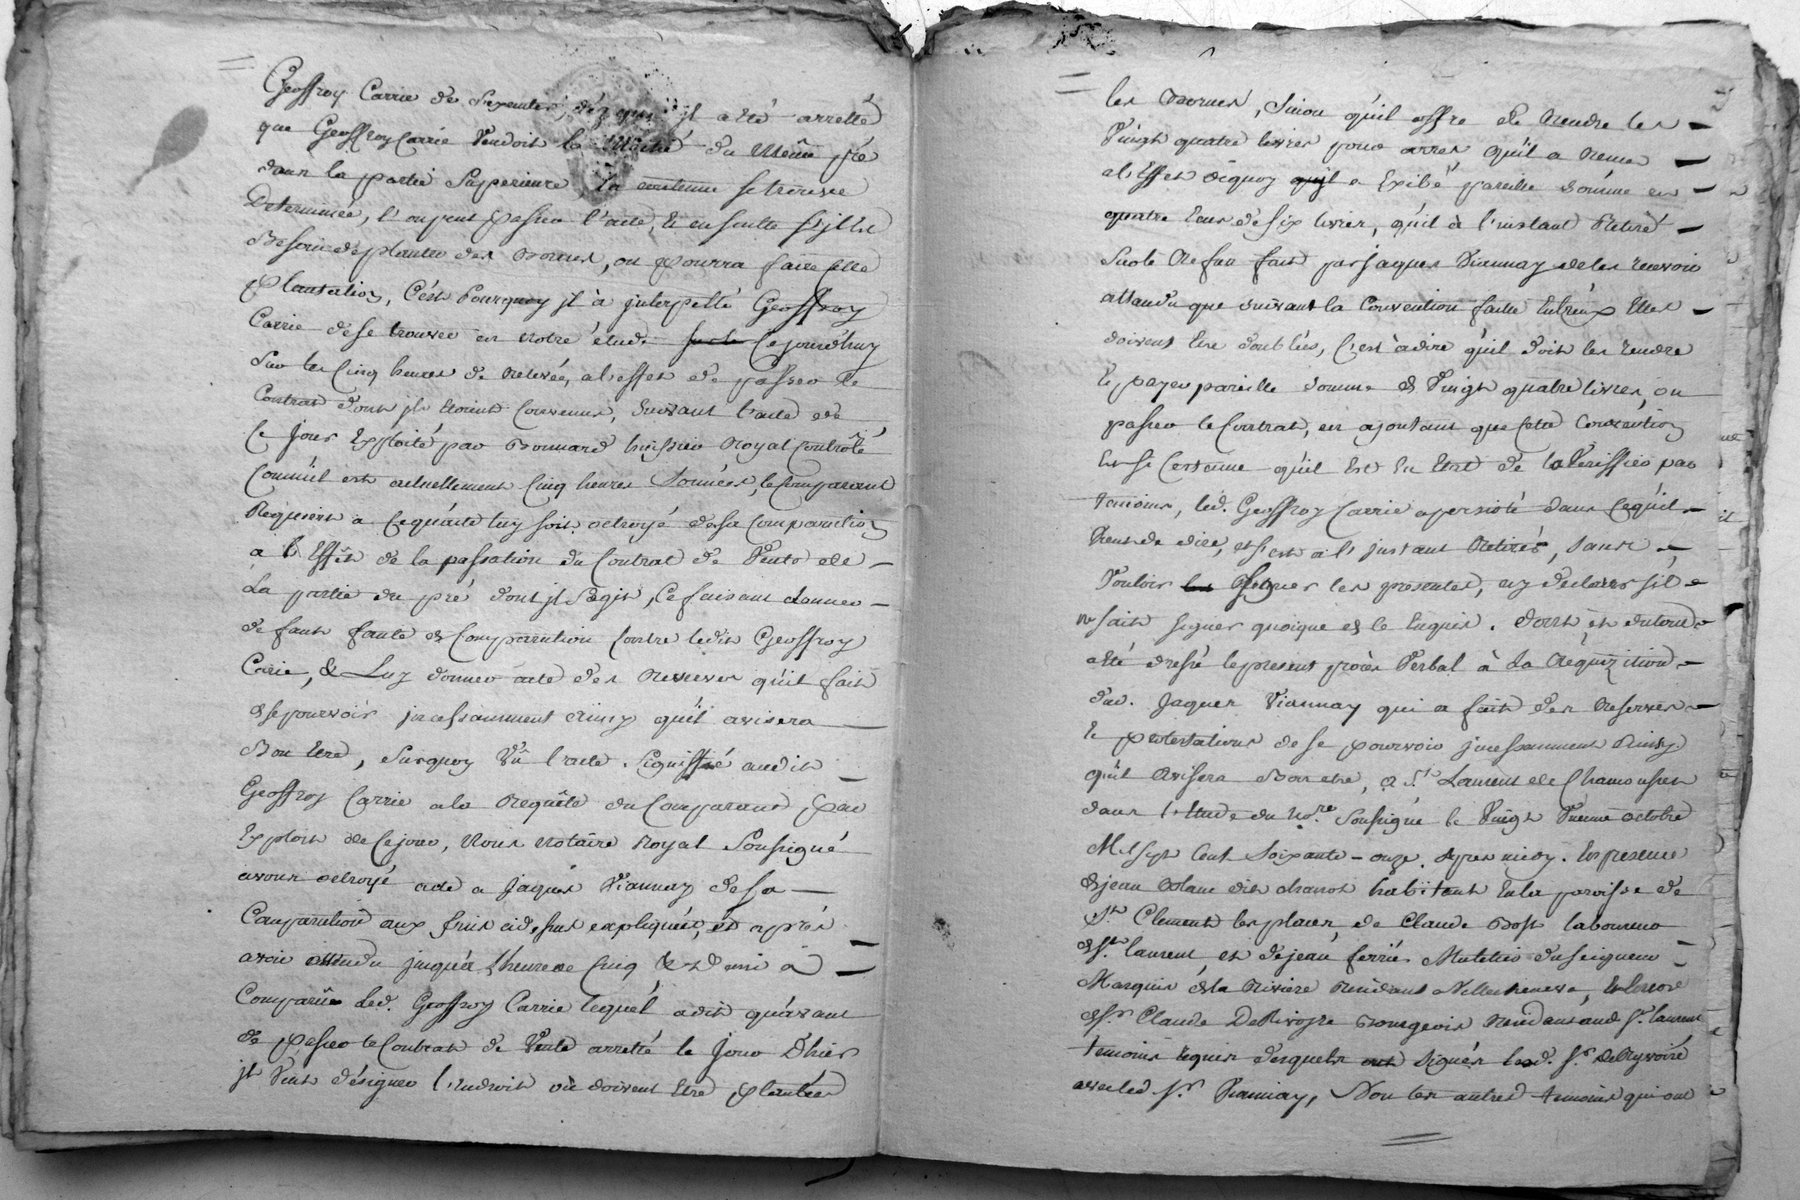 Geoffroy Carrie de il a été arretté
que Geoffroy Carrie Vendoit la Moitié du Meme pré
dans la partie Superieure, la contenue se trouvée
Determinée, l'on peut passer l'acte, et ensuitte s'jl est
Besoin de planter des Bornes, on pourra faire cette
plantation, C'est Pourquoy jl à jnterpellé Geoffroy
Carrie de se trouver en notre étude cejourd'huy
Sur les Cinq heures de Relevée, a l'effet de passer le
Contrat dont jls étoient Convenus, suivant l'acte de
Ce jour Exploité par Bonnard huissier Royal controllé
Comme il est actuellement Cinq heures Sonnées, le Comparant
Requiert a Ce qu'acte luy soit octroyé de sa Comparution
a l'Effet de la passation du Contrat de Vente de
La partie du pré dont jl s'agit, Ce faisant donner
defaut faute de Comparution Contre ledit Geoffroy
Carie, & Luy donner acte des Reserves qu'il fait
de se pourvoir jncessamment Ainsy qu'il avisera
Bon Etre, Surquoy Vû l'acte Signiffié audit
Geoffroy Carrie a la Requête du Comparant par
Exploit de Ce jour, Nous Notaire Royal Soussigné
avons octroyé acte a Jaques Viannay de sa
Comparution aux fins cidessus expliquées, et après
avoir attendu jusqu'a l'heure de Cinq & demi a
Comparû Led. Geoffroy Carrie lequel a dit qu'avant
de passer le Contrat de Vente arretté le Jour D'hier
jl Veut désigner l'Endroit où doivent Etre plantées
les Bornes, Sinon qu'il offre de Rendre les
Vingt quatre livres pour arres qu'il a Reçues
a l'Effet dequoy a Exibé pareille somme en
quatre Ecus de six livres, qu'il à l'instant Retiré
Sur le Refus fait par Jaques Viannay de les recevoir
attendu que suivant la Convention faitte Entr'eux Elles
doivent Etre doublées, C'est à dire qu'il doit les rendre
Et payer pareille somme de Vingt quatre livres, ou
passer le Contrat, en ajoutant que Cette Convention
Est si Certaine qu'il Est En Etat de la Veriffier par
temoins, led. Geoffroy Carrie a persisté dans Ce qu'il
Vient de dire, et s'est a l'jnstant Retiré, sans
Vouloir Signer les presentes, ny declarer s'il
ne sait signer quoique de ce Enquis. dont et du tout
a été dressé le present procès Verbal à La Réquizition
dud. Jaques Viannay qui a fait des Reserves
Et protestations de se pourvoir jncessamment Ainsy
qu'il Avisera Bon etre, a St. Laurent de Chamousset
dans l'Etude du No.re Soussigné le Vingt Vnieme octobre
Mil sept Cent Soixante-onze. Apres midy. En presence
de jean dit habitant En la paroisse de
St. Clement les places, de Claude Bost laboureur
de St. laurent, et de jean ferrié Muletier du seigneur
Marquis de la Riviere Residant a Villechenève,
de Sr. Claude DeRivoyre Bourgeois Residant aud St. laurent
temoins requis desquels signés led. Sr. DeRyvoire
avec led Sr. Viannay, Non les autres temoins qui ont